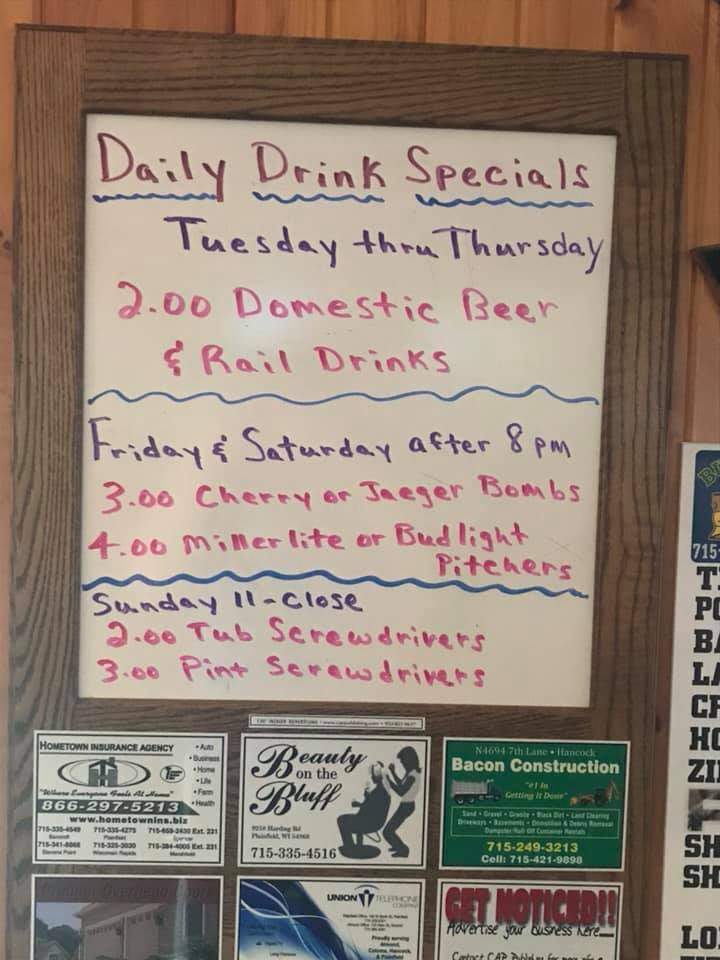 Daily Drink Specials
Tuesday thru Thursday
2.00 Domestic Beer
& Rail Drinks
Friday & Saturday after 8 pm
3.00 Cherry or Jaeger Bombs
4.00 Miller lite or Bud light
Pitchers
Sunday 11-Close
2.00 Tub Screwdrivers
3.00 Pint Screwdrivers
HOMETOWN INSURANCE AGENCY
• Auto
• Business
• Home
• Life
• Farm
• Health
"Where Everyone Feels At Home"
866-297-5213
www.hometownins.biz
715-335-4549 715-335-4275 715-659-2430 Ext. 231
Bancroft Plainfield Spencer
715-341-8868 715-325-3020 715-384-4005 Ext. 231
Stevens Point Wisconsin Rapids Marshfield
Beauty
on the
Bluff
9258 Harding Rd
Plainfield, WI 54966
715-335-4516
N4694 7th Lane • Hancock
Bacon Construction
"#1 In
Getting It Done"
Sand • Gravel • Granite • Black Dirt • Land Clearing
Driveways • Basements • Demolition & Debris Removal
Dumpster/Roll Off Container Rentals
715-249-3213
Cell: 715-421-9898
UNION TELEPHONE
COMPANY
Proudly serving
Almond,
Coloma, Hancock,
& Plainfield
GET NOTICED!!
Advertise your business here...
715-
LO